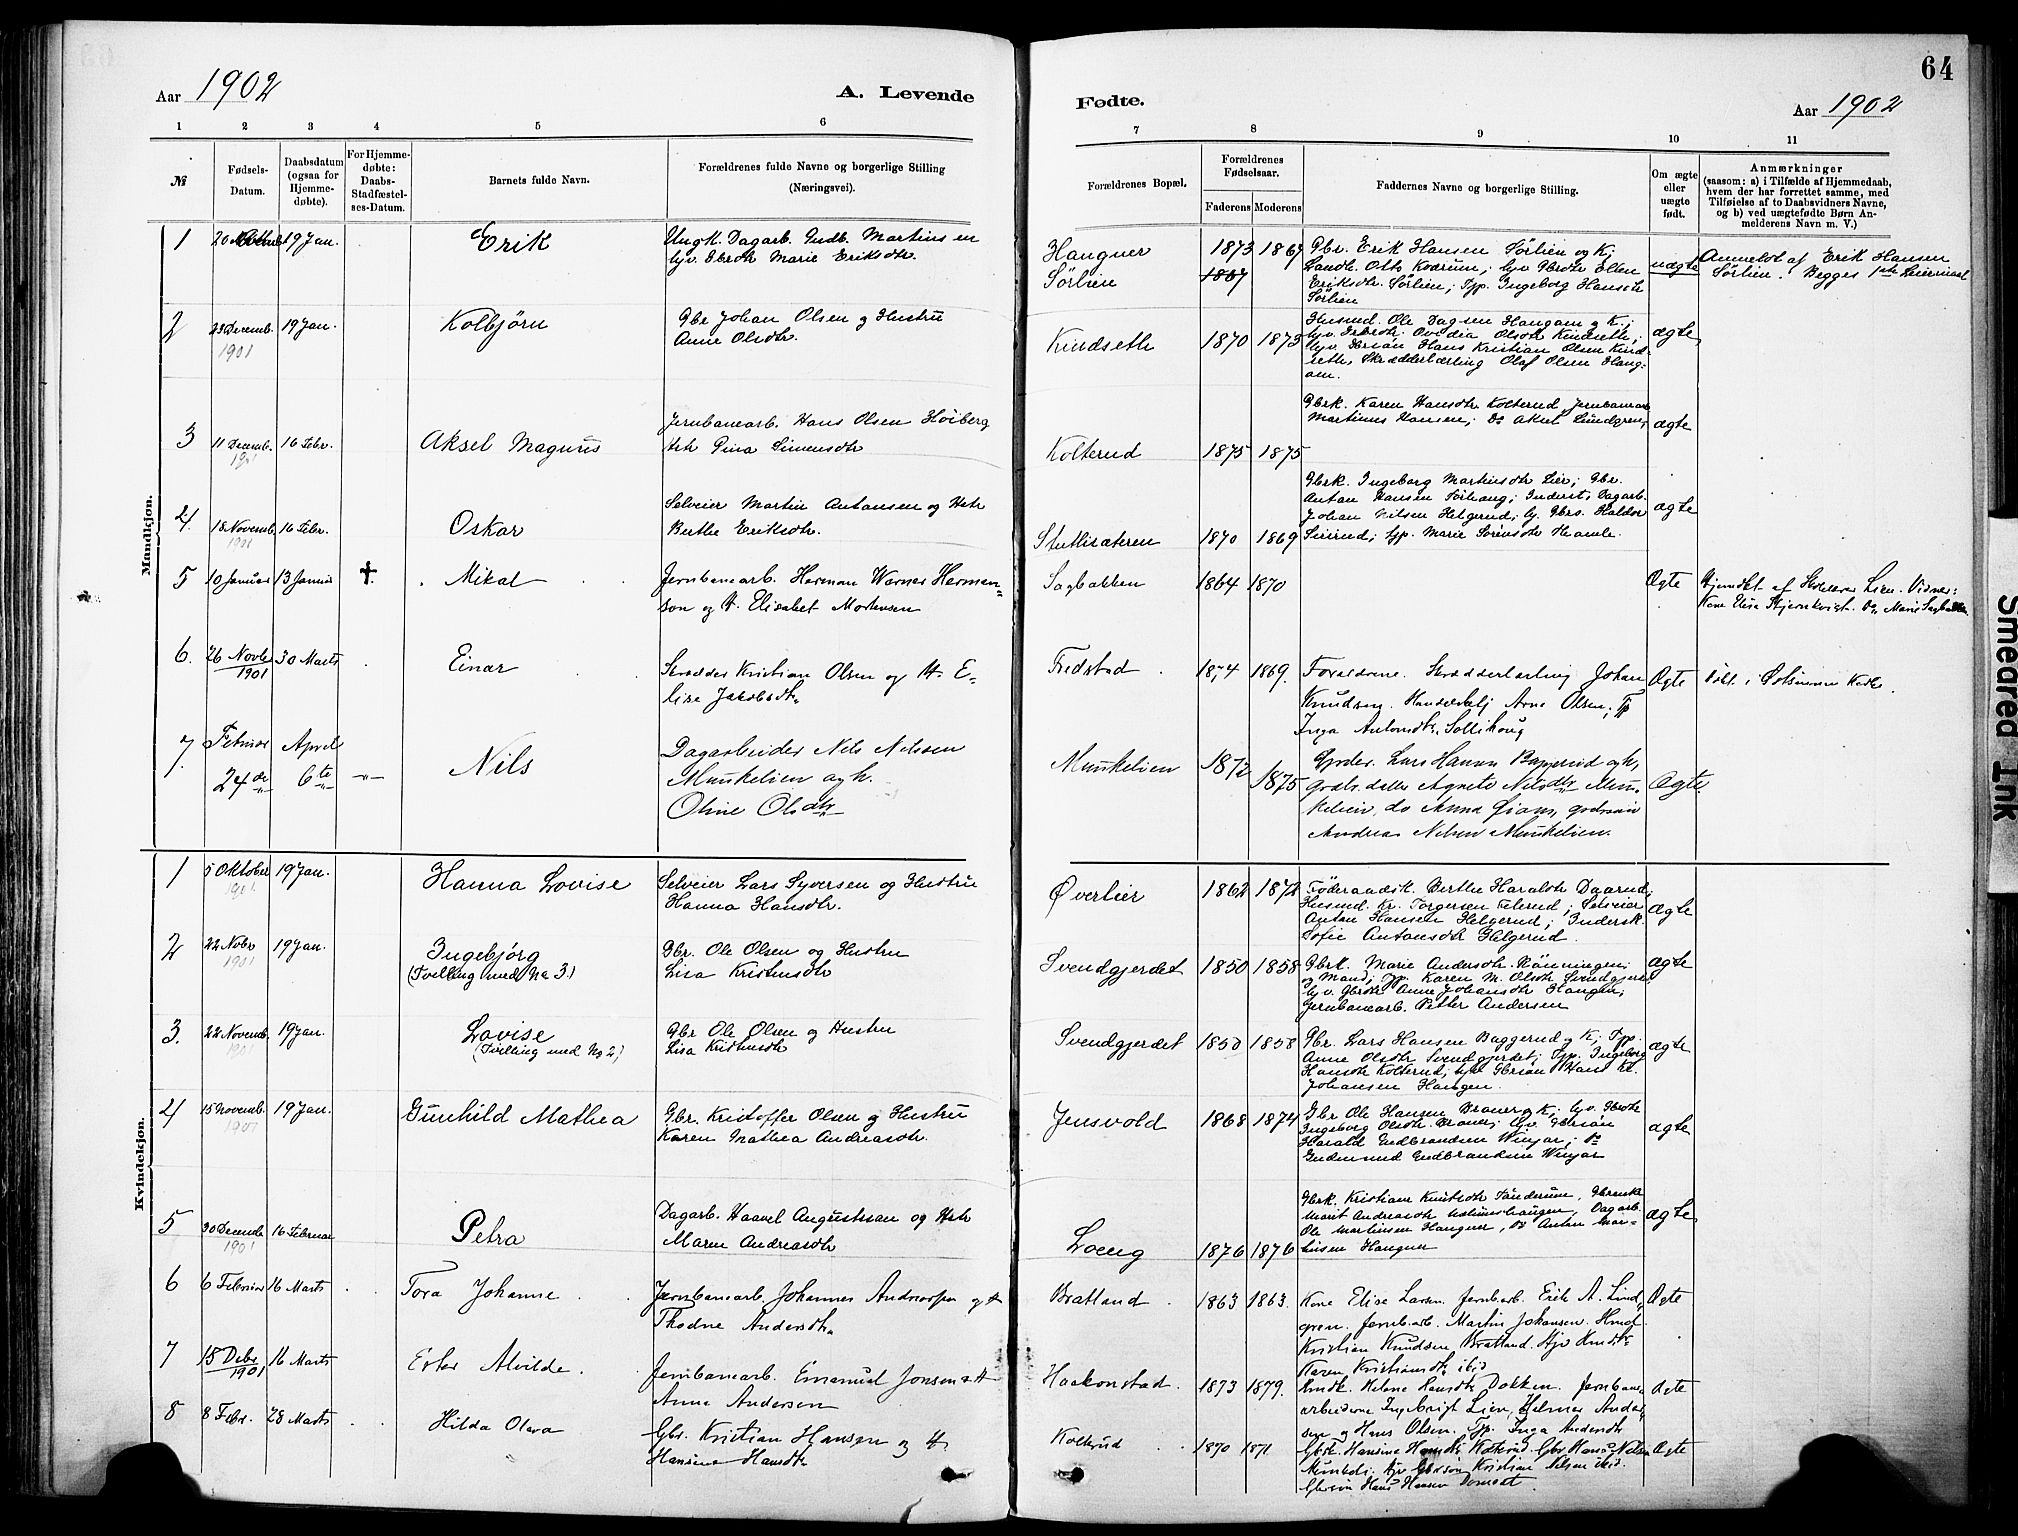 64
Aar 1902
A. Levende
Fødte.
Aar 1902
1 2 3 4 5 6 7 8 9 10 11
№
Fødsels-
Datum.
Daabsdatum
(ogsaa for
Hjemme-
døbte).
For Hjemme-
døbte:
Daabs-
Stadfæstel-
ses-Datum.
Barnets fulde Navn.
Forældrenes fulde Navne og borgerlige Stilling
(Næringsvei).
Forældrenes Bopæl.
Forældrenes
Fødselsaar.
Faderens Moderens
Faddernes Navne og borgerlige Stilling.
Om ægte
eller
uægte
født.
Anmærkninger
(saasom: a) i Tilfælde af Hjemmedaab,
hvem der har forrettet samme, med
Tilføielse af to Daabsvidners Navne,
og b) ved uægtefødte Børn An-
melderens Navn m. V.)
Mandkjøn.
1 19 Jan. Erik
Ungk. Dagarb. Gudb. Martinsen
Marie Eriksdtr.
Hangner
Sørlien
1873 1867
1867
Gbr. Erik Hansen Sørlien og K;
Eriksdtr. Sørlien; Tjp. Ingeborg Hansdtr
Sørlien
uægte
Anmeldt af Erik Hansen
Sørlien. Begges 1ste Leiermaal
2 23 Decemb. 19 Jan. Kolbjørn
1901
Gbr Johan Olsen og Hustru
Anne Olsdtr.
Kindseth 1870 1873
Husmd. Ole Dagsen Hangam og K;
Ovidia Olsdtr Kindseth;
Hans Kristian Olsen Kind-
seth, Skrædderlærling Olaf Olsen Hang-
am.
ægte
3 11 Decemb. 16 Febr. Aksel Magnus
1901
Jernbanearb. Hans Olsen Høiberg
Htr Pina Simensdtr
Kolterud 1875 1875
Gbrk. Karen Hansdtr Kolterud, Jernbanearb
Martinus Hansen; Do Aksel Lundgren,
ægte
4. 18 Novemb. 16 Febr. Oskar
1901
Selveier Martin Antonsen og Htr
Berthe Eriksdtr.
1870 1869
Gbrk. Ingeborg Martinsdtr Lier; Gbr.
Antan Hansen Sørhaug; Inderst, Dagarb.
Johan Nilsen Helgerud; Haldor
Marie Sørensdtr Hamle.
ægte
5 10 Januar 13 Januar †. Mikal
Jernbanearb. Herman Warner Herman-
son og H. Elisabet Mortensen
Sagbakken 1864 1870
Ægte
Hjemdøbt af Lien. Vidner:
Kone Elisa Stjernkvist. Do Marie Sagbakken
6. 26 Novbr 30 Marts Einar
1901
Skrædder Kristian Olsen og H. E-
lise Jakobsdtr
Fredstad 1874 1869.
Forældrene. Skrædderlærling Johan
Knudsen. Handelsbetj Arne Olsen; Tp
Inga Antonsdtr. Sollihaug
Ægte
Døbt i Kirke.
7. Februar April Nils
24de 6te -"-
Dagarbeider Nils Nilssen
Munkelien og h.
Oline Olsdtr
Munkelien 1872 1875
Lars Hansen Baggerud og k,
Agnete Nilsdtr Mun-
kelien, do Anna Øian,
Andreas Nilsen Munkelien.
Ægte
Kvindekjøn.
1 5 Oktober 19 Jan. Hanna Lovise
1901
Selveier Lars Syversen og Hustru
Hanna Hansdtr.
Øverlier 1862 1872
Føderaadsk. Berthe Haraldsdtr Daarud;
Husmd. Kr. Torgersen Felerud; Selveier
Antan Hansen Helgerud; Indersk.
Sofie Antonsdtr Helgerud.
ægte
2 22 Nobr 19 Jan. Ingebjørg
1901
(Tvilling med No 3)
Gbr. Ole Olsen og Hustru
Lisa Kristensdtr
Svendgjerdet 1850 1858
Gbrk. Marie Andersdtr Rønningen;
og Mand; Tjp. Karen M. Olsdtr Svendgjerdet
Anne Johansdtr Hangen;
Jernbanearb. Petter Andersen
ægte
3. 22 Novemb. 19 Jan. Lovise
1901
(Tvilling med No 2)
Gbr Ole Olsen og Hustru
Lisa Kristensdtr
Svendgjerdet 1850 1858
Gbr. Lars Hansen Baggerud og K; Tjp.
Anne Olsdtr Svendgjerdet; Tjp. Ingeborg
Hansdtr Kolterud; Hans Kr.
Johansen Hangen.
ægte
4 15 Novemb. 19 Jan. Gunhild Mathea
1901
Gbr. Kristoffer Olsen og Hustru
Karen Mathea Andreasdtr.
Jensvold 1868 1874
Gbr Ole Hansen Braner og K;
Ingeborg Olsdtr. Braner;
Harald Gudbrandsen Winjar; Do
Gudmund Gudbrandsen Winjar
ægte
5 30 Decemb 16 Februar Petra
1901
Dagarb. Haavel Augustssan og Htr
Maren Andreasdtr
Loeng 1876 1876
Gbrk. Kristiane Knutsdtr Sønderum,
Marit Andreasdtr Dagarb.
Ole Martinsen Hangner, Do Antan Mar-
tinsen Hangner
ægte
6 6 Februar 16 Marts Tora Johanne
Jernbanearb. Johannes Andreassen og H
Thodne Andersdtr
Bratland 1863 1863.
Kone Elise Larsen. Jernbarb. Erik A. Lind-
gren. Jernbarb. Martin Johansen.
Kristian Knudsen Bratland.
Karen Kristiansdtr ibid
Ægte
7 15 Debr 16 Marts Ester Alvilde
1901
Jernbanearb. Emanuel Jonsen & H
Anna Andersen
Haakonstad 1873 1879.
Helene Hansdtr Dokken. Jernbane-
arbeiderne Ingebrigt Lien, Helmer Ander-
sen og Hans Olsen. Tp. Inga Andersdtr
Ægte
8 8 Febr. 28 Marts Hilda Olava
Gbr. Kristian Hansen og H
Hansine Hansdtr
Kolterud 1870 1871
Gbrk. Hansine Hansdtr Kolterud. Gbr Hans Nilsen
Kristian Nilsen ibid.
Gbrsøn Hans Hansen
Ægte
Smeared Ink